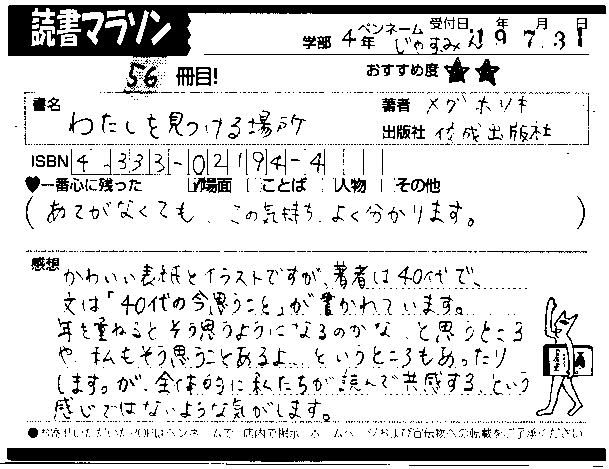 読書マラソン
学部 4年 ペンネーム じゃすみん 受付日 19年 7月 31日
56 冊目! おすすめ度 ★★
書名 わたしを見つける場所 著者 メグホソキ
出版社 佼成出版社
ISBN 4-333-02194-4
♥一番心に残った ☑場面 □ことば □人物 □その他
(あてがなくても、この気持ち、よく分かります。)
感想 かわいい表紙とイラストですが、著者は40代で、
文は「40代の今思うこと」が書かれています。
年を重ねるとそう思うようになるのかな、と思うところ
や、私もそう思うことあるよ…というところもあったり
しますが、全体的に私たちが読んで共感する、という
感じではないような気がします。
●お寄せいただいたPOPはペンネームで、店内で掲示、ホームページおよび宣伝物への転載をご了承ください